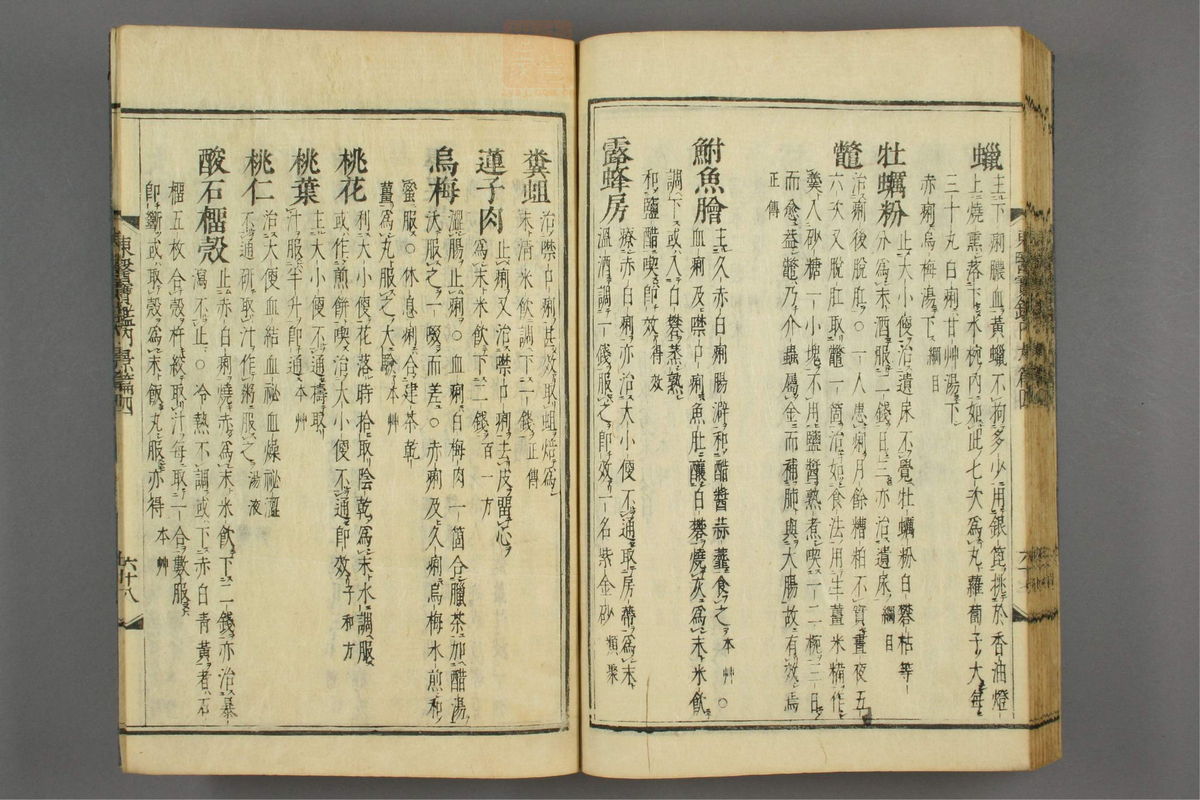 蠟主下痢膿血黃蠟不拘多少用銀篦挑於香油燈
上燒熏落下水椀內如此七次爲丸蘿蔔子大每
三十丸白痢甘艸湯下
赤痢烏梅湯下綱目
牡蠣粉止大小便治遺尿不覺牡蠣粉白礬枯等
分爲末酒服二錢日三亦治遺尿綱目
鼈治痢後脫肛○一人患痢月餘糟粕不實晝夜五
六次又脫肛取鼈一箇治如食法用生薑米糯作
羹入砂糖一小塊不用鹽醬熟煮喫一二椀三日
而愈益鼈乃介蟲屬金而補肺與大腸故有效焉
正傳
鮒魚膾主久赤白痢腸澼和酷醬蒜虀食之本艸○
血痢及噤口痢魚肚釀白礬燒灰爲末米飮
調下或入白礬蒸熟
和鹽醋喫卽效得效
露蜂房療赤白痢亦治大小便不通取房蔕爲末
溫酒調一錢服之卽效一名紫金砂類聚
糞蛆治噤口痢甚效取蛆焙爲
末淸米飮調下一錢正傳
蓮子肉止痢又治噤口痢去皮留心
爲末米飮下二錢百一方
烏梅澁腸止痢○血痢白梅肉一箇合臘茶加醋湯
沃服之一啜而差○赤痢及久痢烏梅水煎和
蜜服○休息痢合建茶乾
薑爲丸服之大驗本艸
桃花利大小便花落時拾取陰乾爲末水調服
或作煎餅喫治大小便不通卽效子和方
桃葉主大小便不通擣取
汁服半升卽通本艸
桃仁治大便血結血祕血燥祕澁
不通硏取汁作粥服之湯液
酸石榴殼止赤白痢燒赤爲末米飮下二錢亦治暴
瀉不止○令熱不調或下赤白靑黃者石
榴五枚合殼杵絞取汁每取一合數服
卽斷或取殼爲末飯丸服亦得本艸
東醫寶鑑內景篇四
六十八